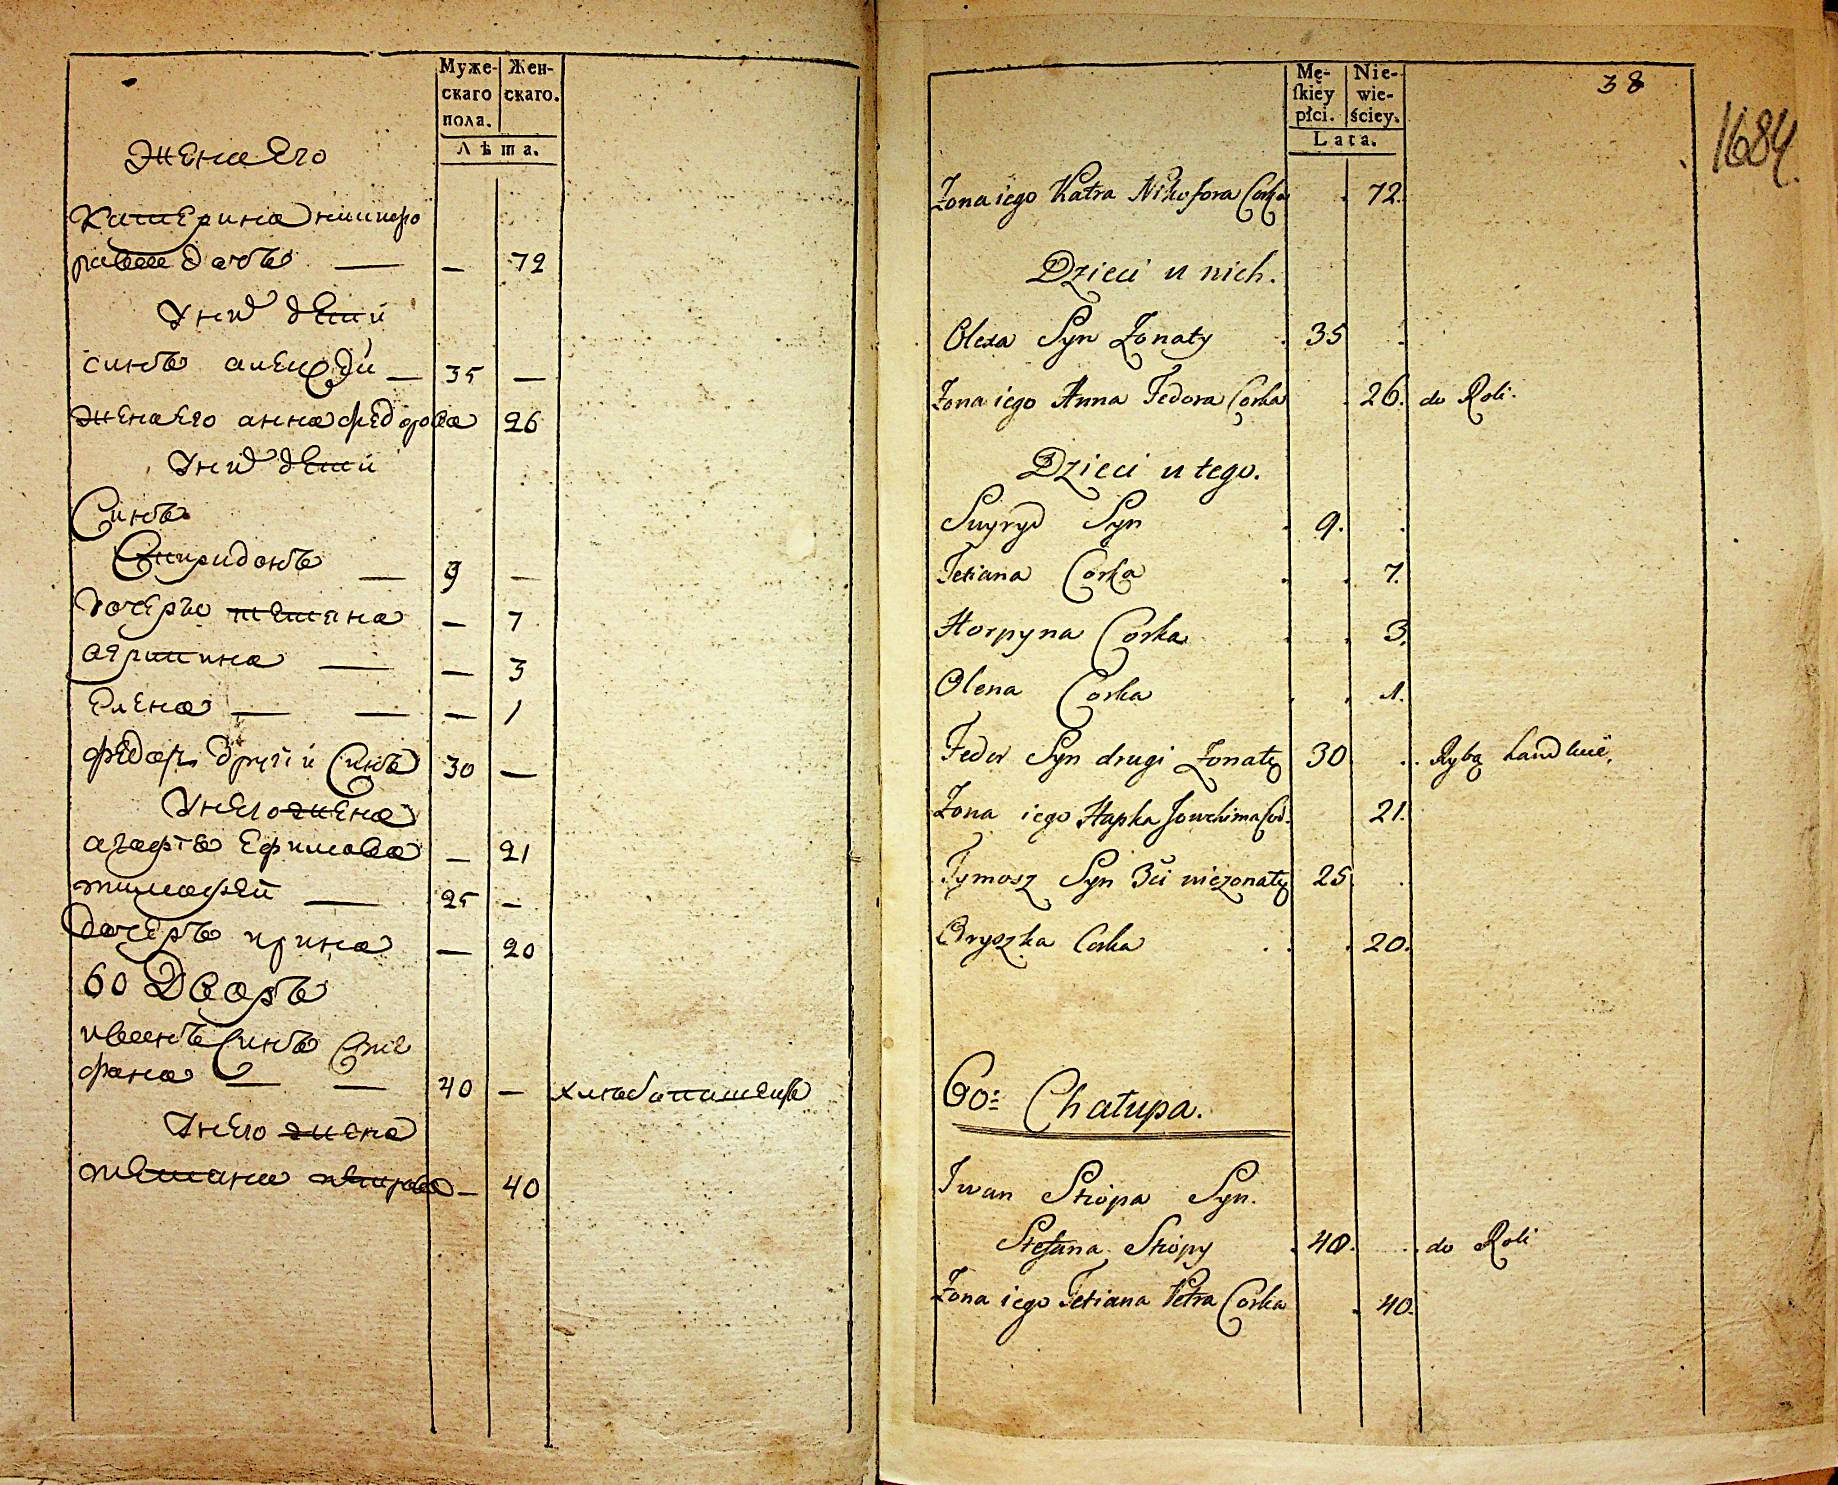 Муже-
скаго
пола.
Жен-
скаго.
Лѣта.
Жена Его
Катерина никифо
рава дочь — — 72
У них дети
синъ алексѣй — 35 —
жена его анна федорова 26
У них дети
Синъ
Спиридонъ — 9 —
дочерь татиана — 7
агрипина — — 3
Елена — — — 1
федоръ другий Синъ 30 —
У него жена
агафия Ефимова — 21
тимофей — 25 —
дочерь ирина — 20
60 Дворъ
иванъ Синъ Сте
фана — — 40 — хлебопашецъ
У него жена
татиана петрова — 40
Mę-
skiey
płci.
Nie-
wie-
ściey.
Lata.
38
1684.
Zona iego Katra Nikofora Corka . 72.
Dzieci u nich.
Olexa Syn Zonaty . 35 .
Zona iego Anna Fedora Corka . 26. do Roli.
Dzieci u tego.
Swyryd Syn . 9. .
Tetiana Corka . . 7.
Horpyna Corka . . 3.
Olena Corka . . 1.
Fedor Syn drugi Zonaty 30 .. Rybą handluie,
Zona iego Hapka Jowchima Cor. 21.
Tymosz Syn 3ci niezonaty 25 .
Oryszka Corka . . . 20.
60: Chałupa.
Iwan Stiopa Syn.
Stefana Stiopy . 40. .. do Roli
Zona iego Tetiana Petra Corka . 40.